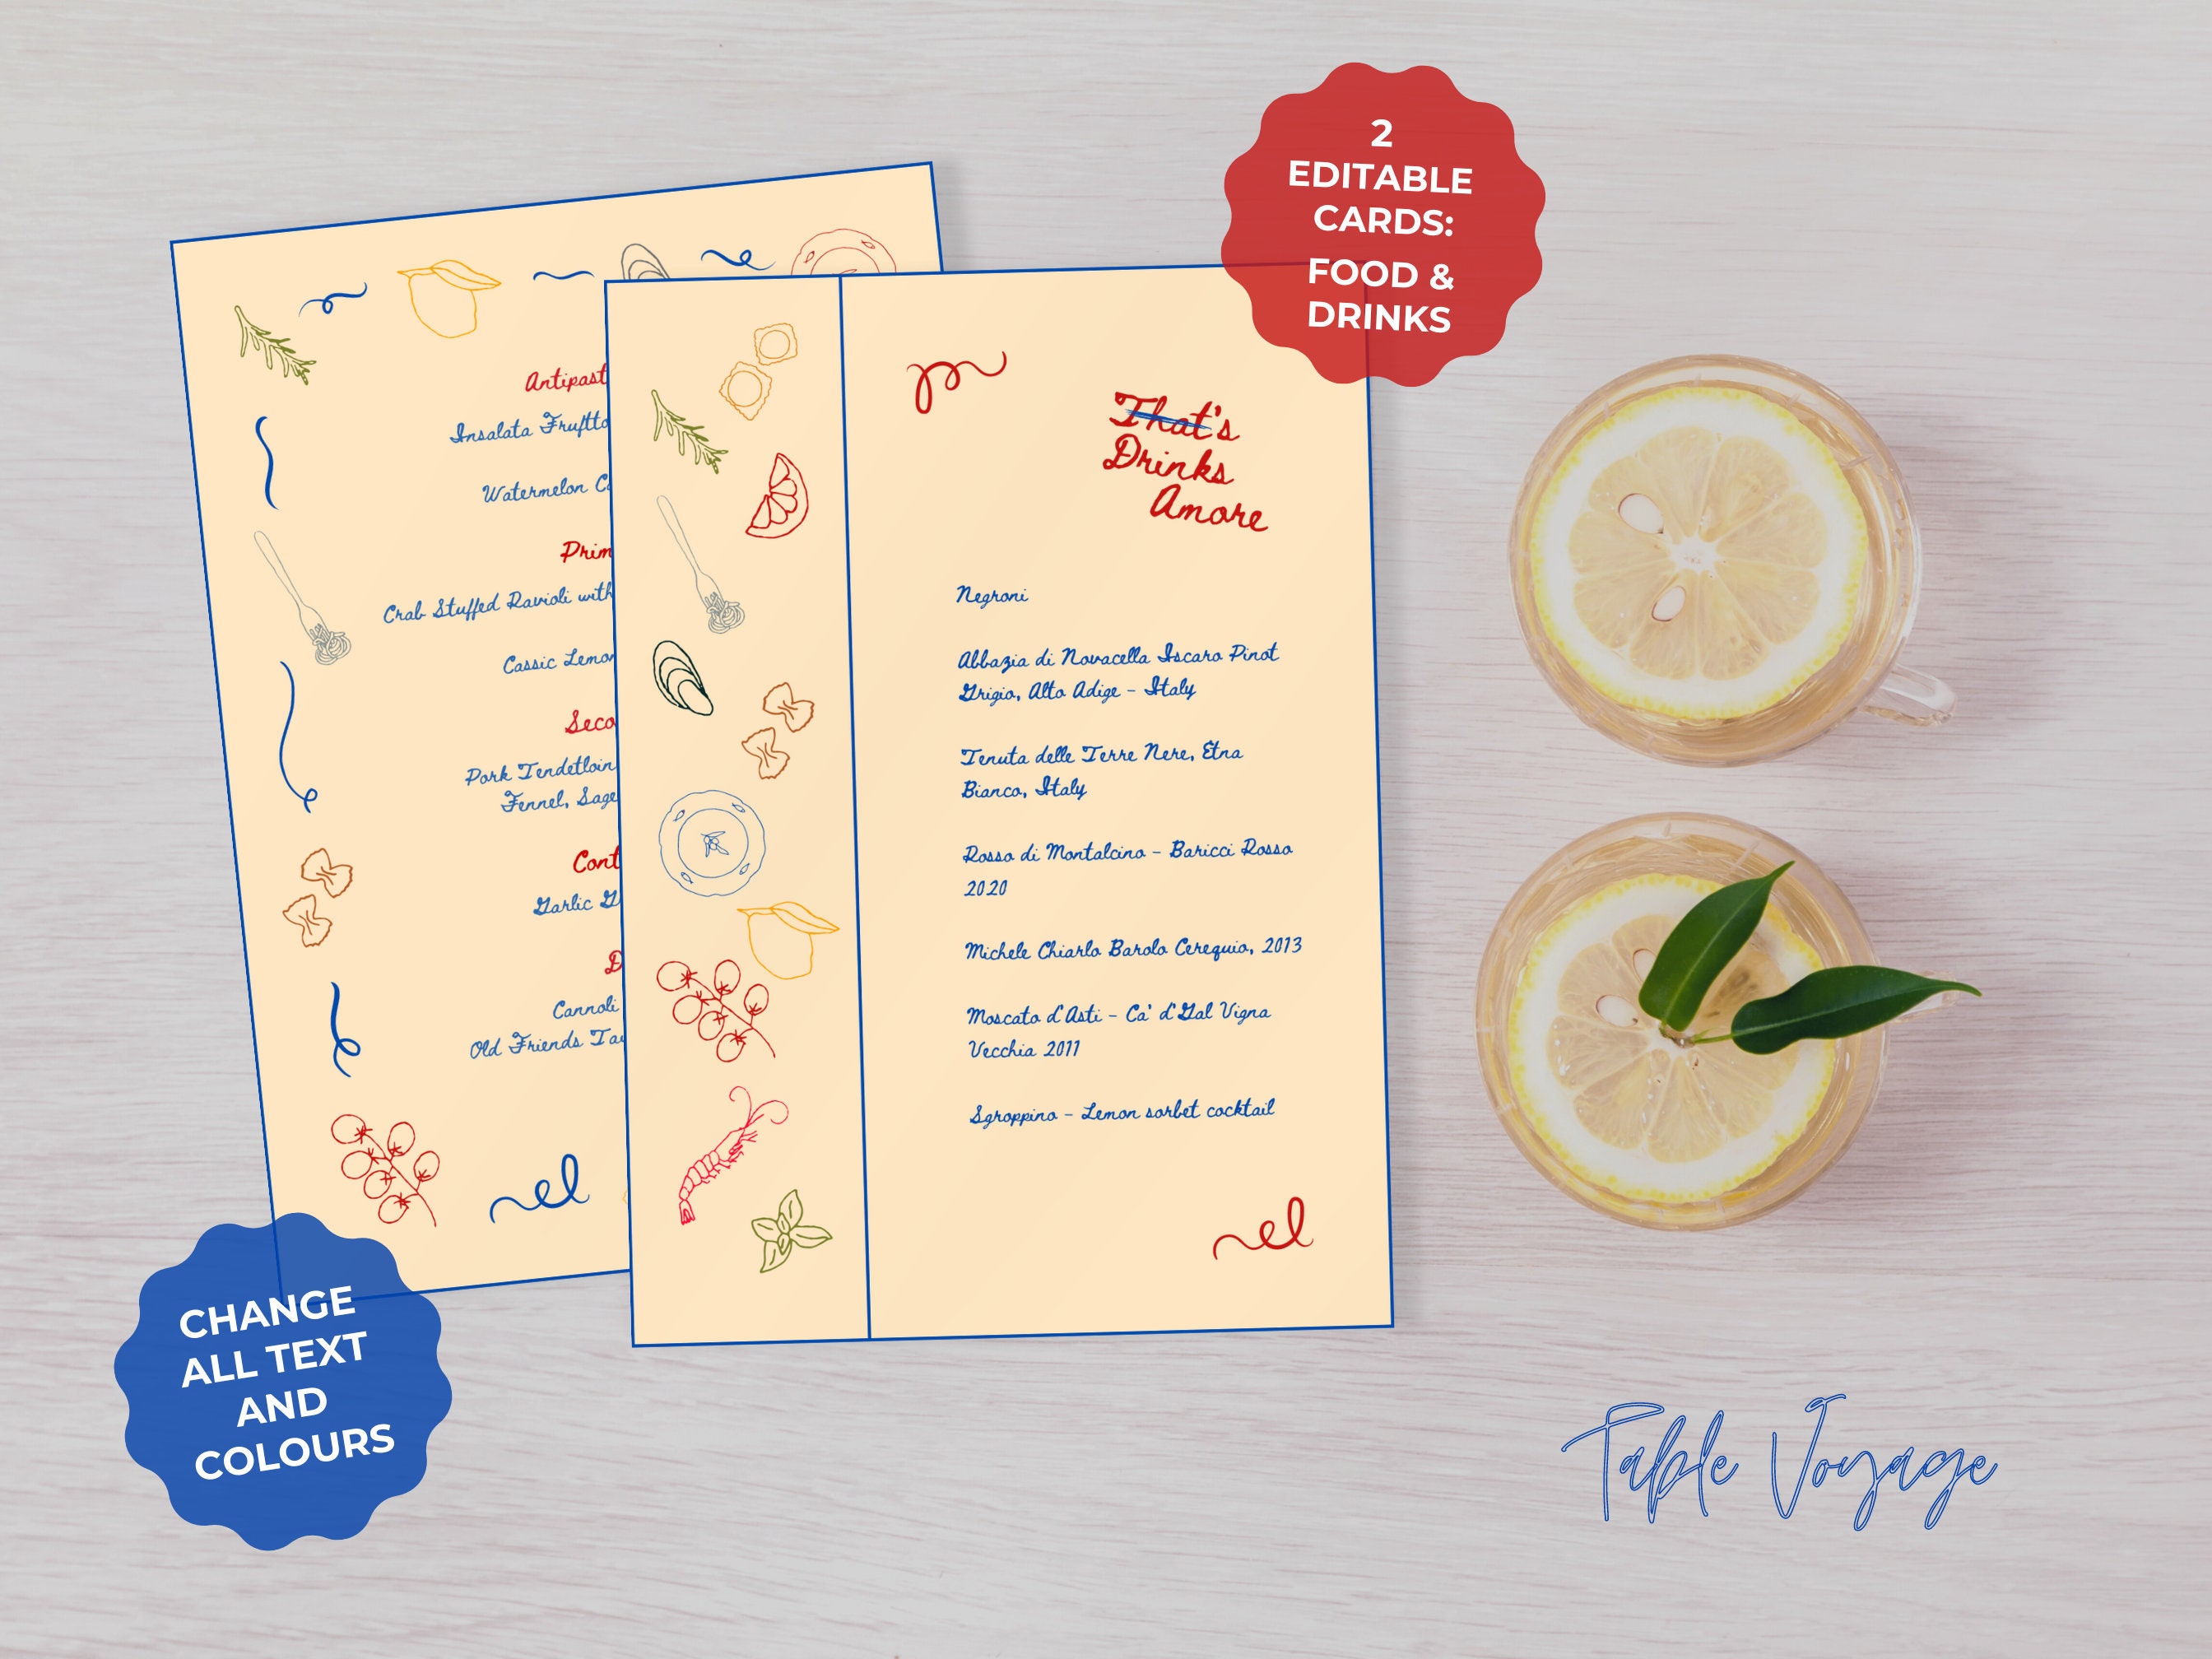 2
EDITABLE
CARDS:
FOOD &
DRINKS
Antipast
Insalata Fruftto
Watermelon
Prim
Crab Stuffed Ravioli with
Cassic Lemon
Seco
Pork Tendetloin
Fennel, Sage
Cont
Garlic
Cannoli
Old Friends
That's
Drinks
Amore
Negroni
Abbazia di Novacella Iscaro Pinot
Grigio, Alto Adige - Italy
Tenuta delle Terre Nere, Etna
Bianco, Italy
Rosso di Montalcino - Baricci Rosso
2020
Michele Chiarlo Barolo Cerequio, 2013
Moscato d'Asti - Ca' d'Gal Vigna
Vecchia 2011
Sgroppino - Lemon sorbet cocktail
CHANGE
ALL TEXT
AND
COLOURS
Table Voyage